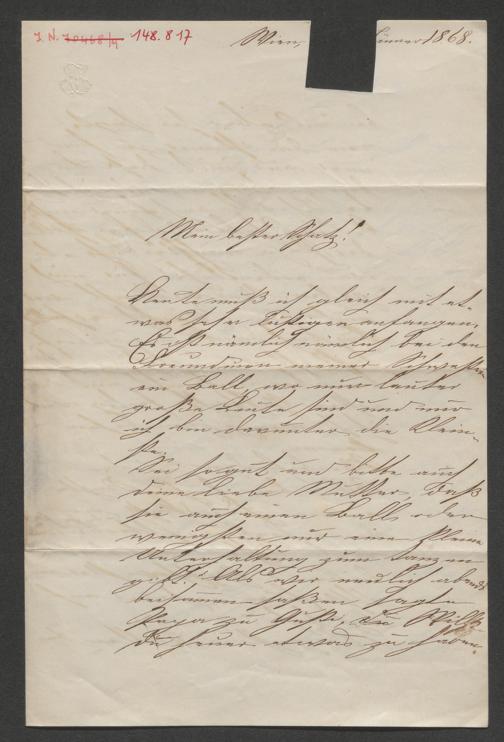 J. N. 70468/4 148.817
Wien, Jänner 1868.
Mein bester Schatz!
Heute muß ich gleich mit et-
was sehr lustigen anfangen.
Es ist nämlich neulich bei den
Freundinnen meiner Schwester
ein Ball, wo nur lauter
große Leute sind und nur
ich bin darunter die Klein-
ste.
Sei so gut und bitte auch
deine liebe Mutter, daß
sie auch einen Ball oder
wenigsten nur eine kleine
Unterhaltung zum tanzen
gibt. Als wir neulich abends
beisammen saßen sagte
Papa zu
Du heuer etwas zu haben.